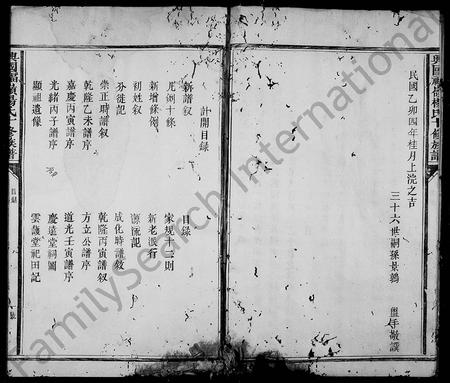 民國乙卯四年桂月上浣之吉
三十六世嗣孫景鶴
盥手敬譔
計開目錄
新譜叙
目錄
凡例十條
家規十二則
新增條例
新老派行
初姓叙
源流記
分徙記
成化時譜敘
崇正時譜叙
乾隆丙寅譜叙
乾隆乙未譜序
方立公譜序
嘉慶丙寅譜序
道光壬寅譜序
光緒丙子譜序
慶遠堂祠圖
顯祖遺像
雲蔭堂祀田記
目錄
FamilySearch International